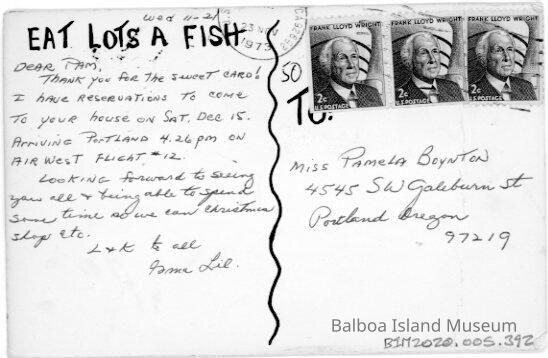 Wed 11-21
EAT LOTS A FISH
DEAR PAM,
THANK YOU FOR THE SWEET CARD!
I HAVE RESERVATIONS TO COME
TO YOUR HOUSE ON SAT, DEC 15.
ARRIVING PORTLAND 4:26 pm ON
AIR WEST FLIGHT #12.
LOOKING forward to seeing
you all & being able to spend
some time so we can Christmas
shop etc.
L&K to all
Gma Lil.
23 NOV
1973
92662
FRANK LLOYD WRIGHT
2c
U.S. POSTAGE
FRANK LLOYD WRIGHT
2c
U.S. POSTAGE
FRANK LLOYD WRIGHT
2c
U.S. POSTAGE
50
TO:
MISS PAMELA BOYNTON
4545 SW Galeburn St
Portland Oregon
97219
Balboa Island Museum
BIM2020.005.392